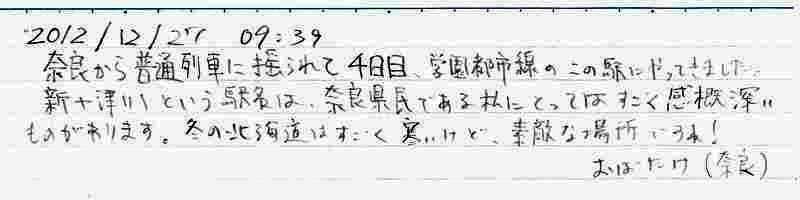 2012/12/27 09:39
奈良から普通列車に揺られて4日目、学園都市線のこの駅にやってきました。
新十津川という駅名は、奈良県民である私にとってはすごく感慨深い
ものがあります。冬の北海道はすごく寒いけど、素敵な場所ですね！
おばたけ（奈良）